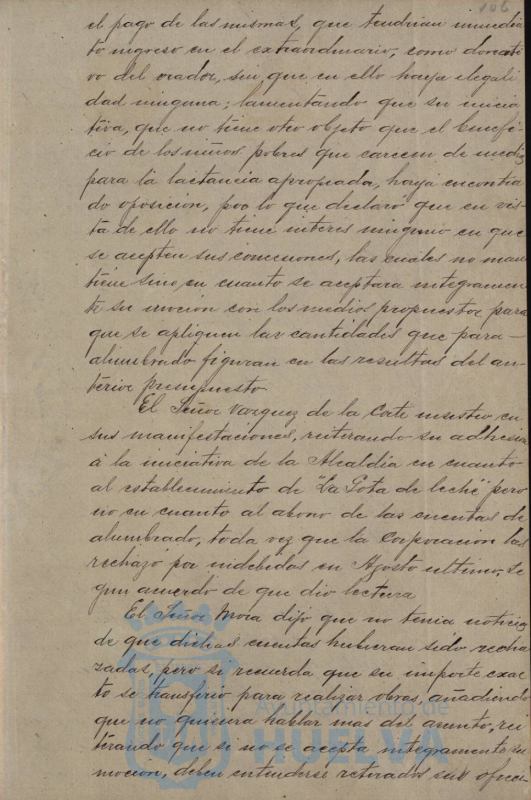 106
el pago de las mismas, que tendrian inmedia
to ingreso en el extraordinario, como donati
vo del orador, sin que en ello haya ilegali
dad ninguna; lamentando que su inicia
tiva, que no tiene otro objeto que el benefi
cio de los niños pobres que carecen de medios
para la lactancia apropiada, haya encontra
do oposicion, por lo que declaró que en vis
ta de ello no tiene interes ninguno en que
se acepten sus concesiones, las cuales no man
tiene sino en cuanto se aceptara integramen
te su mocion con los medios propuestos para
que se apliquen las cantidades que para
alumbrado figuran en las resultas del an
terior presupuesto
El Señor Vazquez de la Corte insistio en
sus manifestaciones, reiterando su adhesion
á la iniciativa de la Alcaldia en cuanto
al establecimiento de "La Gota de leche" pero
no en cuanto al abono de las cuentas de
alumbrado, toda vez que la Corporacion las
rechazó por indebidas en Agosto ultimo, se
gun acuerdo de que dio lectura
El Señor Mora dijo que no tenia noticia
de que dichas cuentas hubieran sido recha
zadas, pero si recuerda que su importe exac
to se transfirio para realizar obras, añadiendo
que no quisiera hablar mas del asunto, rei
terando que si no se acepta integramente su
mocion, deben entenderse retirados sus ofreci-
Ayuntamiento de
HUELVA